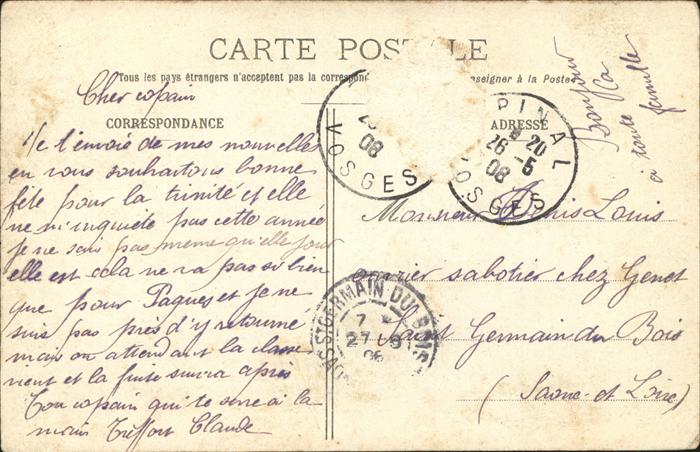 CARTE POSTALE
Tous les pays étrangers n'acceptent pas la correspond
nseigner à la Poste
Cher copain
CORRESPONDANCE
ADRESSE
Je t'envoie de mes nouvelles
en vous souhaitons bonne
fête pour la trinité et elle
ne m'inquiète pas cette année
je ne sais pas meme qu'elle jour
elle est cela ne va pas si bien
que pour Paques et je ne
suis pas près d'y retourné
mais on attendant la classe
vient et la fuite suivra après
Ton copain qui te serre à la
main Treffort Claude
Bonjour
à toute
famille
Monsieur Denis Louis
ouvrier sabotier chez Genet
Saint Germain du Bois
(Saone et Loire)
08
VOSGES
EPINAL
20
26 -5
08
VOSGES
ST GERMAIN DU BOIS
7
27